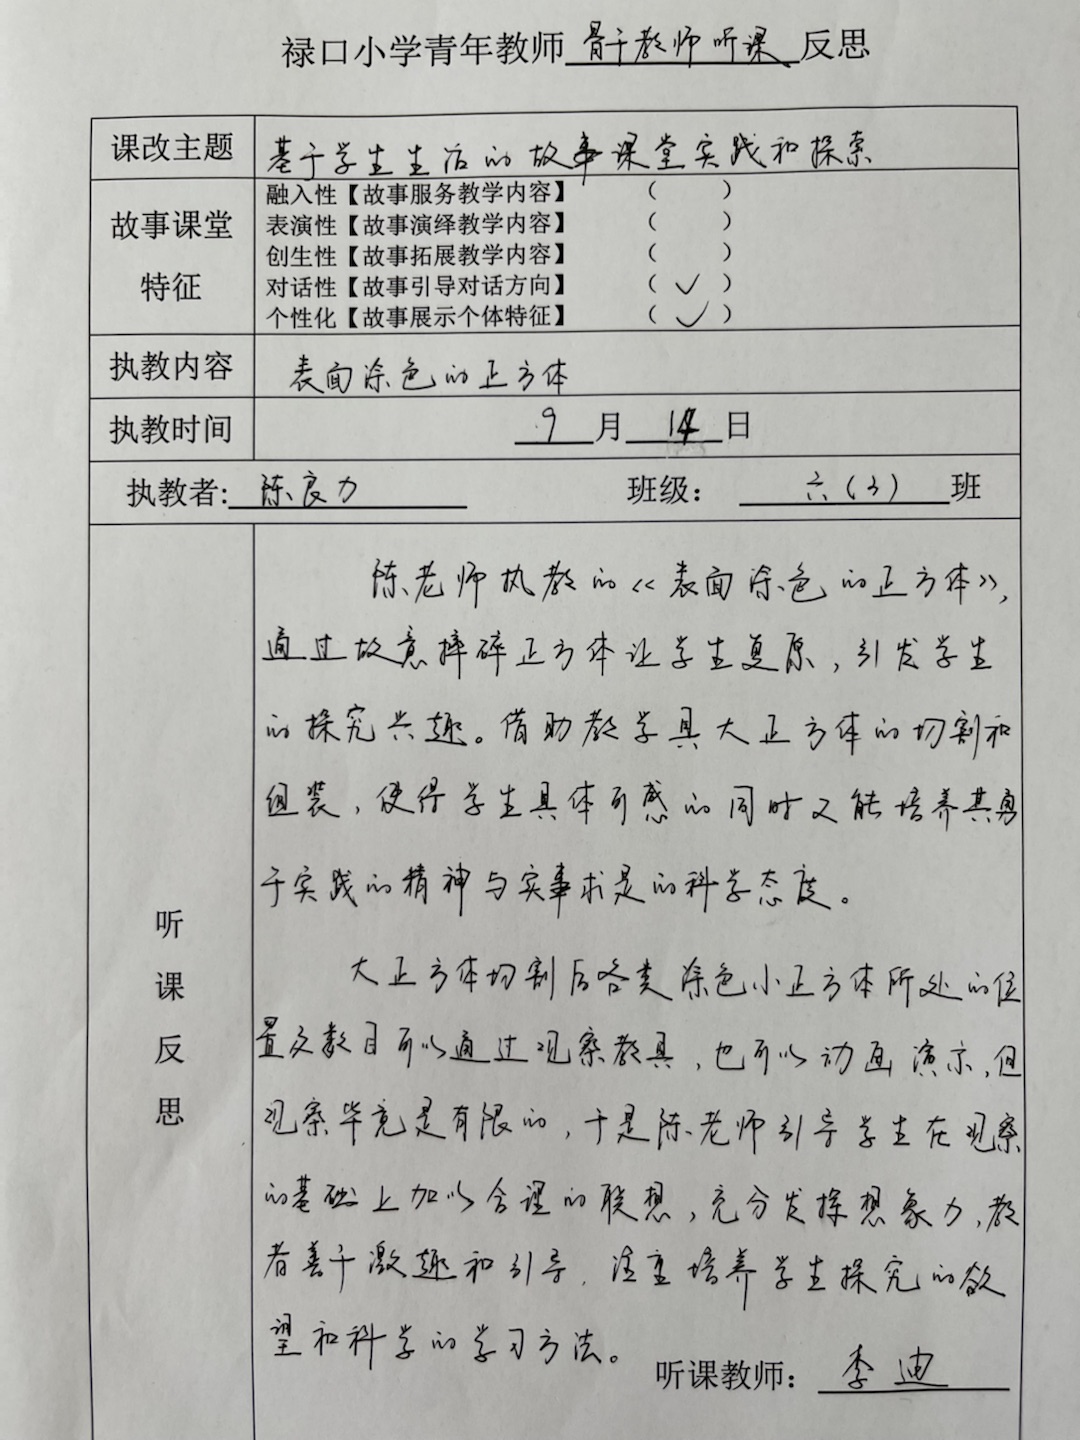 禄口小学青年教师骨干教师听课反思
课改主题 基于学生生活的故事课堂实践和探索
故事课堂特征
融入性【故事服务教学内容】 （ ）
表演性【故事演绎教学内容】 （ ）
创生性【故事拓展教学内容】 （ ）
对话性【故事引导对话方向】 （ ✓ ）
个性化【故事展示个体特征】 （ ✓ ）
执教内容 表面涂色的正方体
执教时间 9月14日
执教者: 陈良力 班级： 六(3)班
听课反思
陈老师执教的《表面涂色的正方体》，
通过故意摔碎正方体让学生复原，引发学生
的探究兴趣。借助教学具大正方体的切割和
组装，使得学生具体可感的同时又能培养其勇
于实践的精神与实事求是的科学态度。
大正方体切割后各类涂色小正方体所处的位
置及数目可以通过观察教具，也可以动画演示，但
观察毕竟是有限的，于是陈老师引导学生在观察
的基础上加以合理的联想，充分发挥想象力，教
者善于激趣和引导，注重培养学生探究的欲
望和科学的学习方法。
听课教师： 李迪